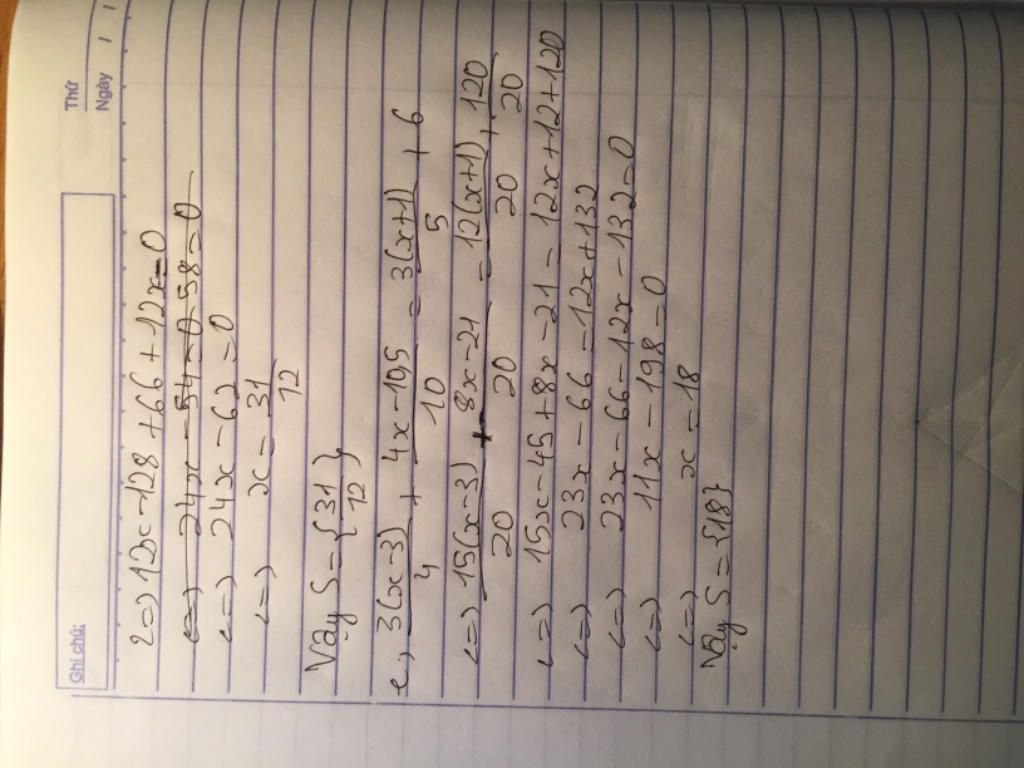 Ghi chú:
Thứ
Ngày / /
<=> 12x - 128 + 66 + 12x = 0
<=> 24x - 54 = 0 - 58 = 0
<=> 24x - 62 = 0
<=> x = 31/12
Vậy S = {31/12}
e, 3(x-3)/4 + 4x - 10,5/10 = 3(x+1)/5 + 6
<=> 15(x-3)/20 + 8x - 21/20 = 12(x+1)/20 + 120/20
<=> 15x - 45 + 8x - 21 = 12x + 12 + 120
<=> 23x - 66 = 12x + 132
<=> 23x - 66 - 12x - 132 = 0
<=> 11x - 198 = 0
<=> x = 18
Vậy S = {18}